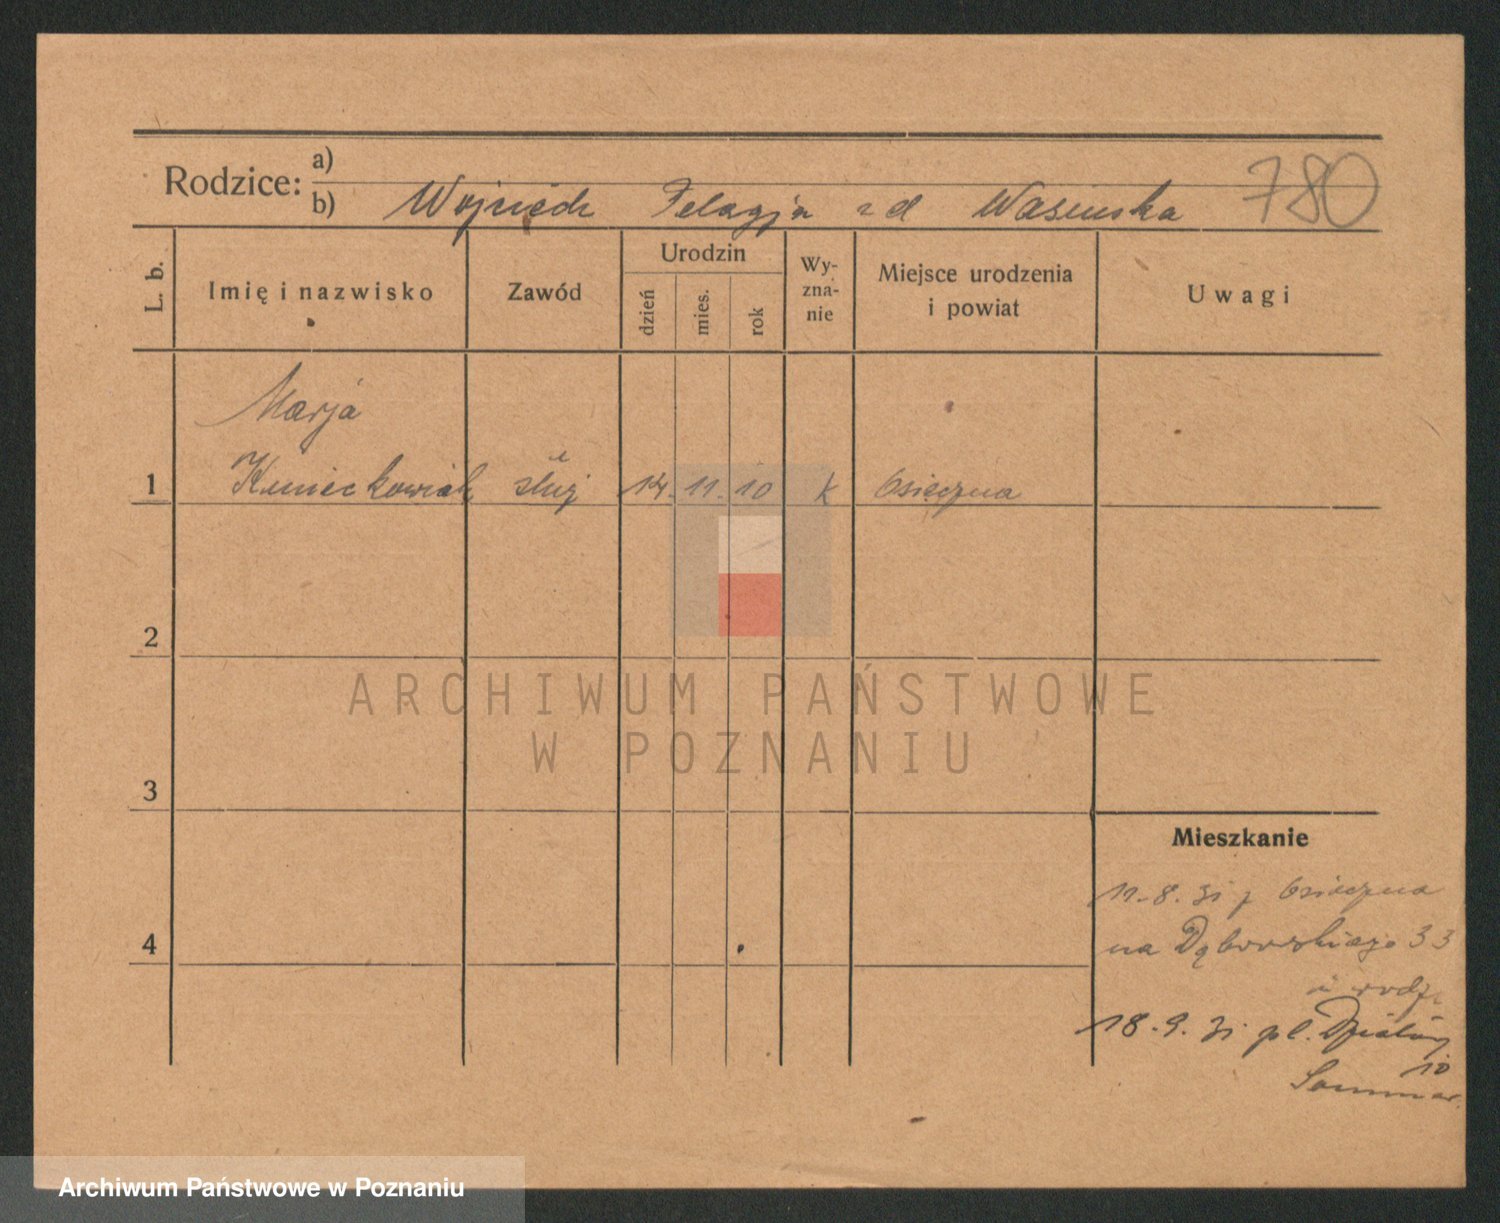 Rodzice:
a)
b) Wojciech Pelagja z d Wasińska 780
L. b.
Imię i nazwisko
Zawód
Urodzin
dzień
mies.
rok
Wy-
zna-
nie
Miejsce urodzenia
i powiat
Uwagi
Marja
1 służ 14. 11. 10 k Osieczna
2
3
4
Mieszkanie
11.8.31 z Osieczna
na Dąbrowskiego 33
u rodz.
18.9.31 pl.
10
ARCHIWUM PAŃSTWOWE
W POZNANIU
Archiwum Państwowe w Poznaniu